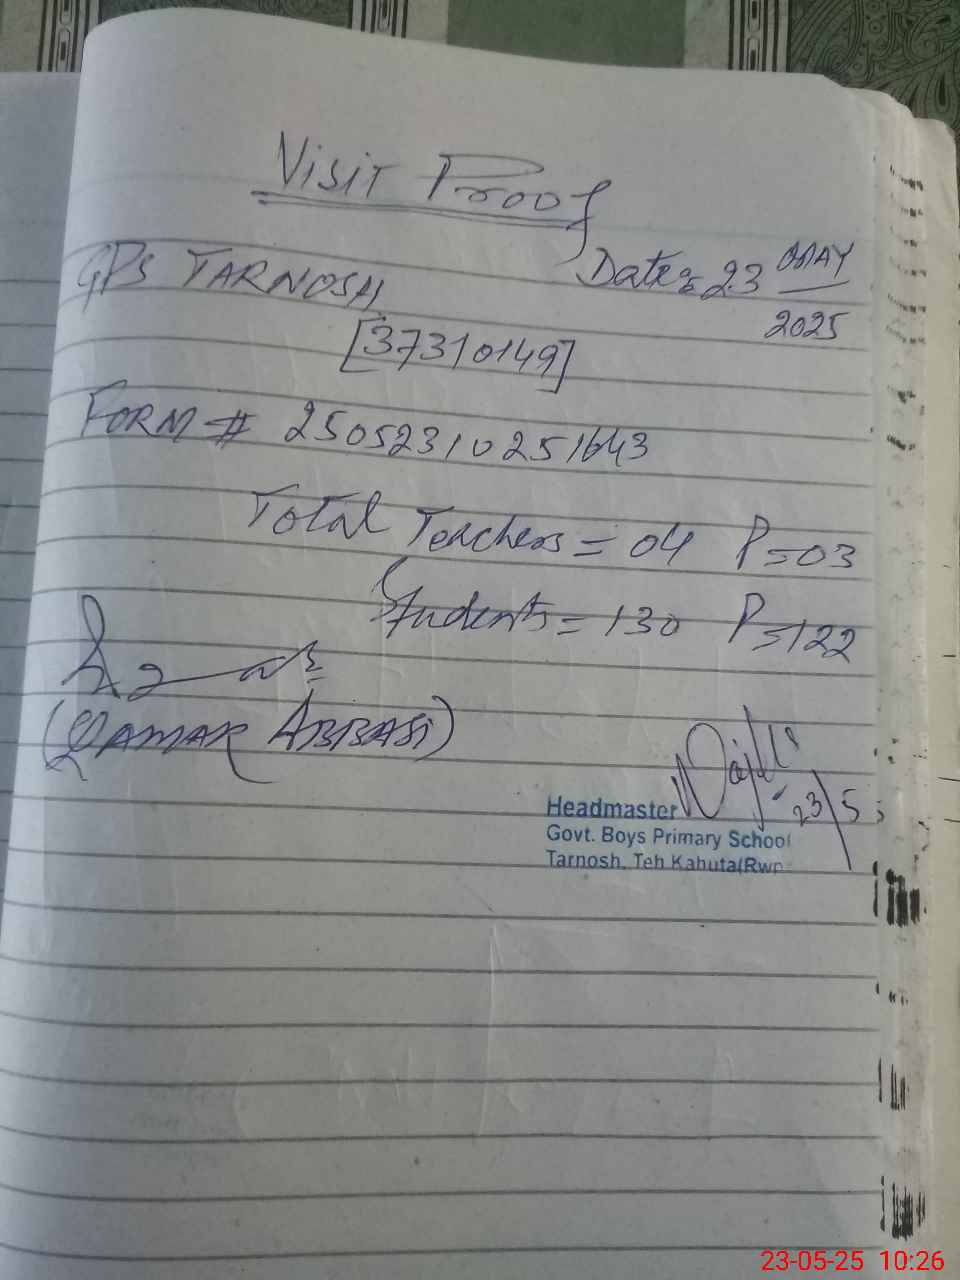 Visit Proof
GPS TARNOSH
Date: 23 MAY
2025
[37310149]
FORM # 25052310251643
Total Teachers = 04 P=03
Students = 130 P=122
(QAMAR ABBASI)
23/5
Headmaster
Govt. Boys Primary School
Tarnosh, Teh Kahuta(Rwp
23-05-25 10:26